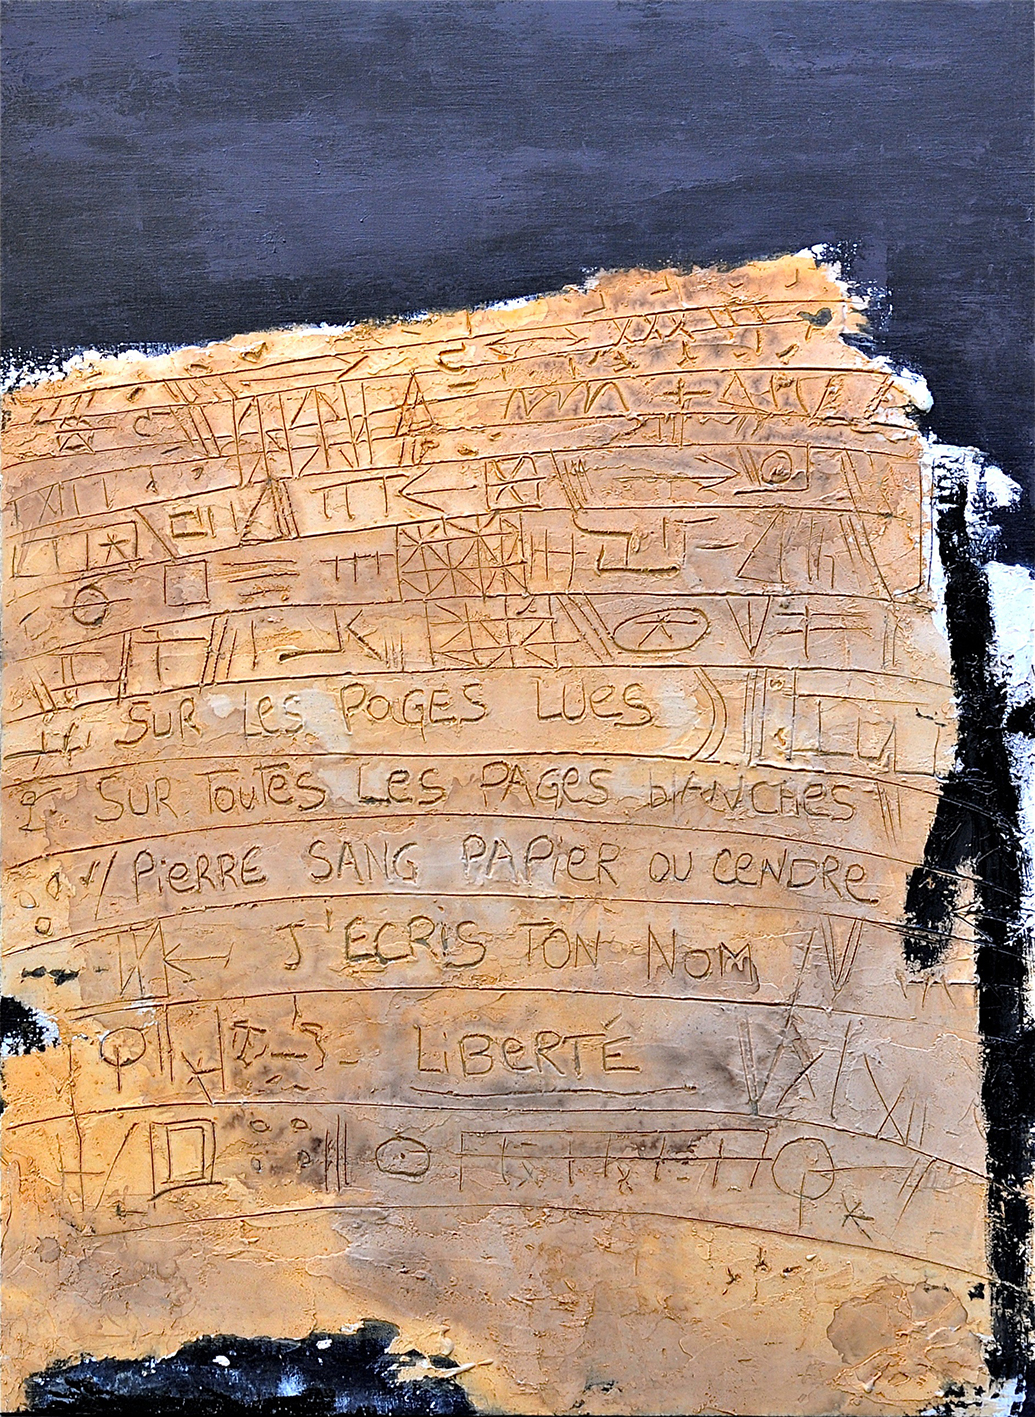 SUR LES PAGES LUES
SUR TOUTES LES PAGES BLANCHES
PIERRE SANG PAPIER OU CENDRE
J'ECRIS TON NOM
LIBERTÉ